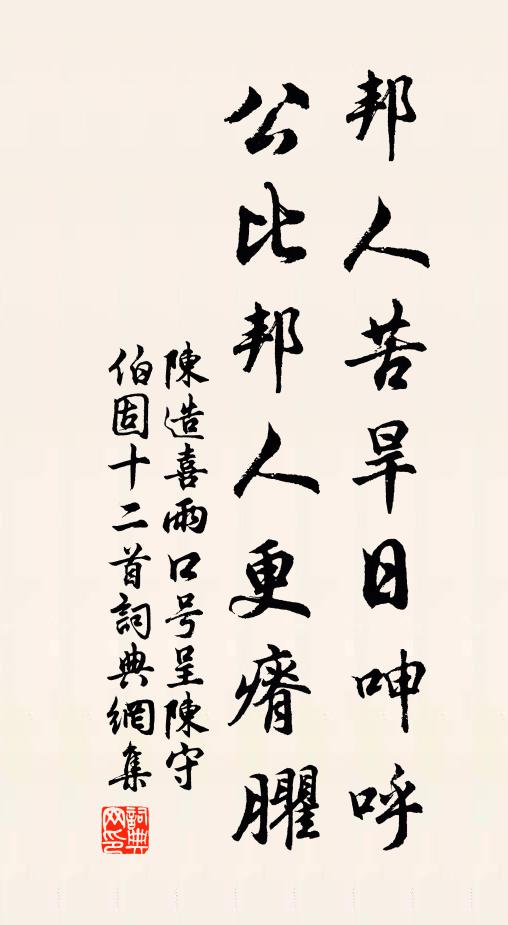 邦人苦旱日呻呼
公比邦人更瘠臞
陳造喜雨口号呈陳守
伯固十二首詞典網集
詞典网印